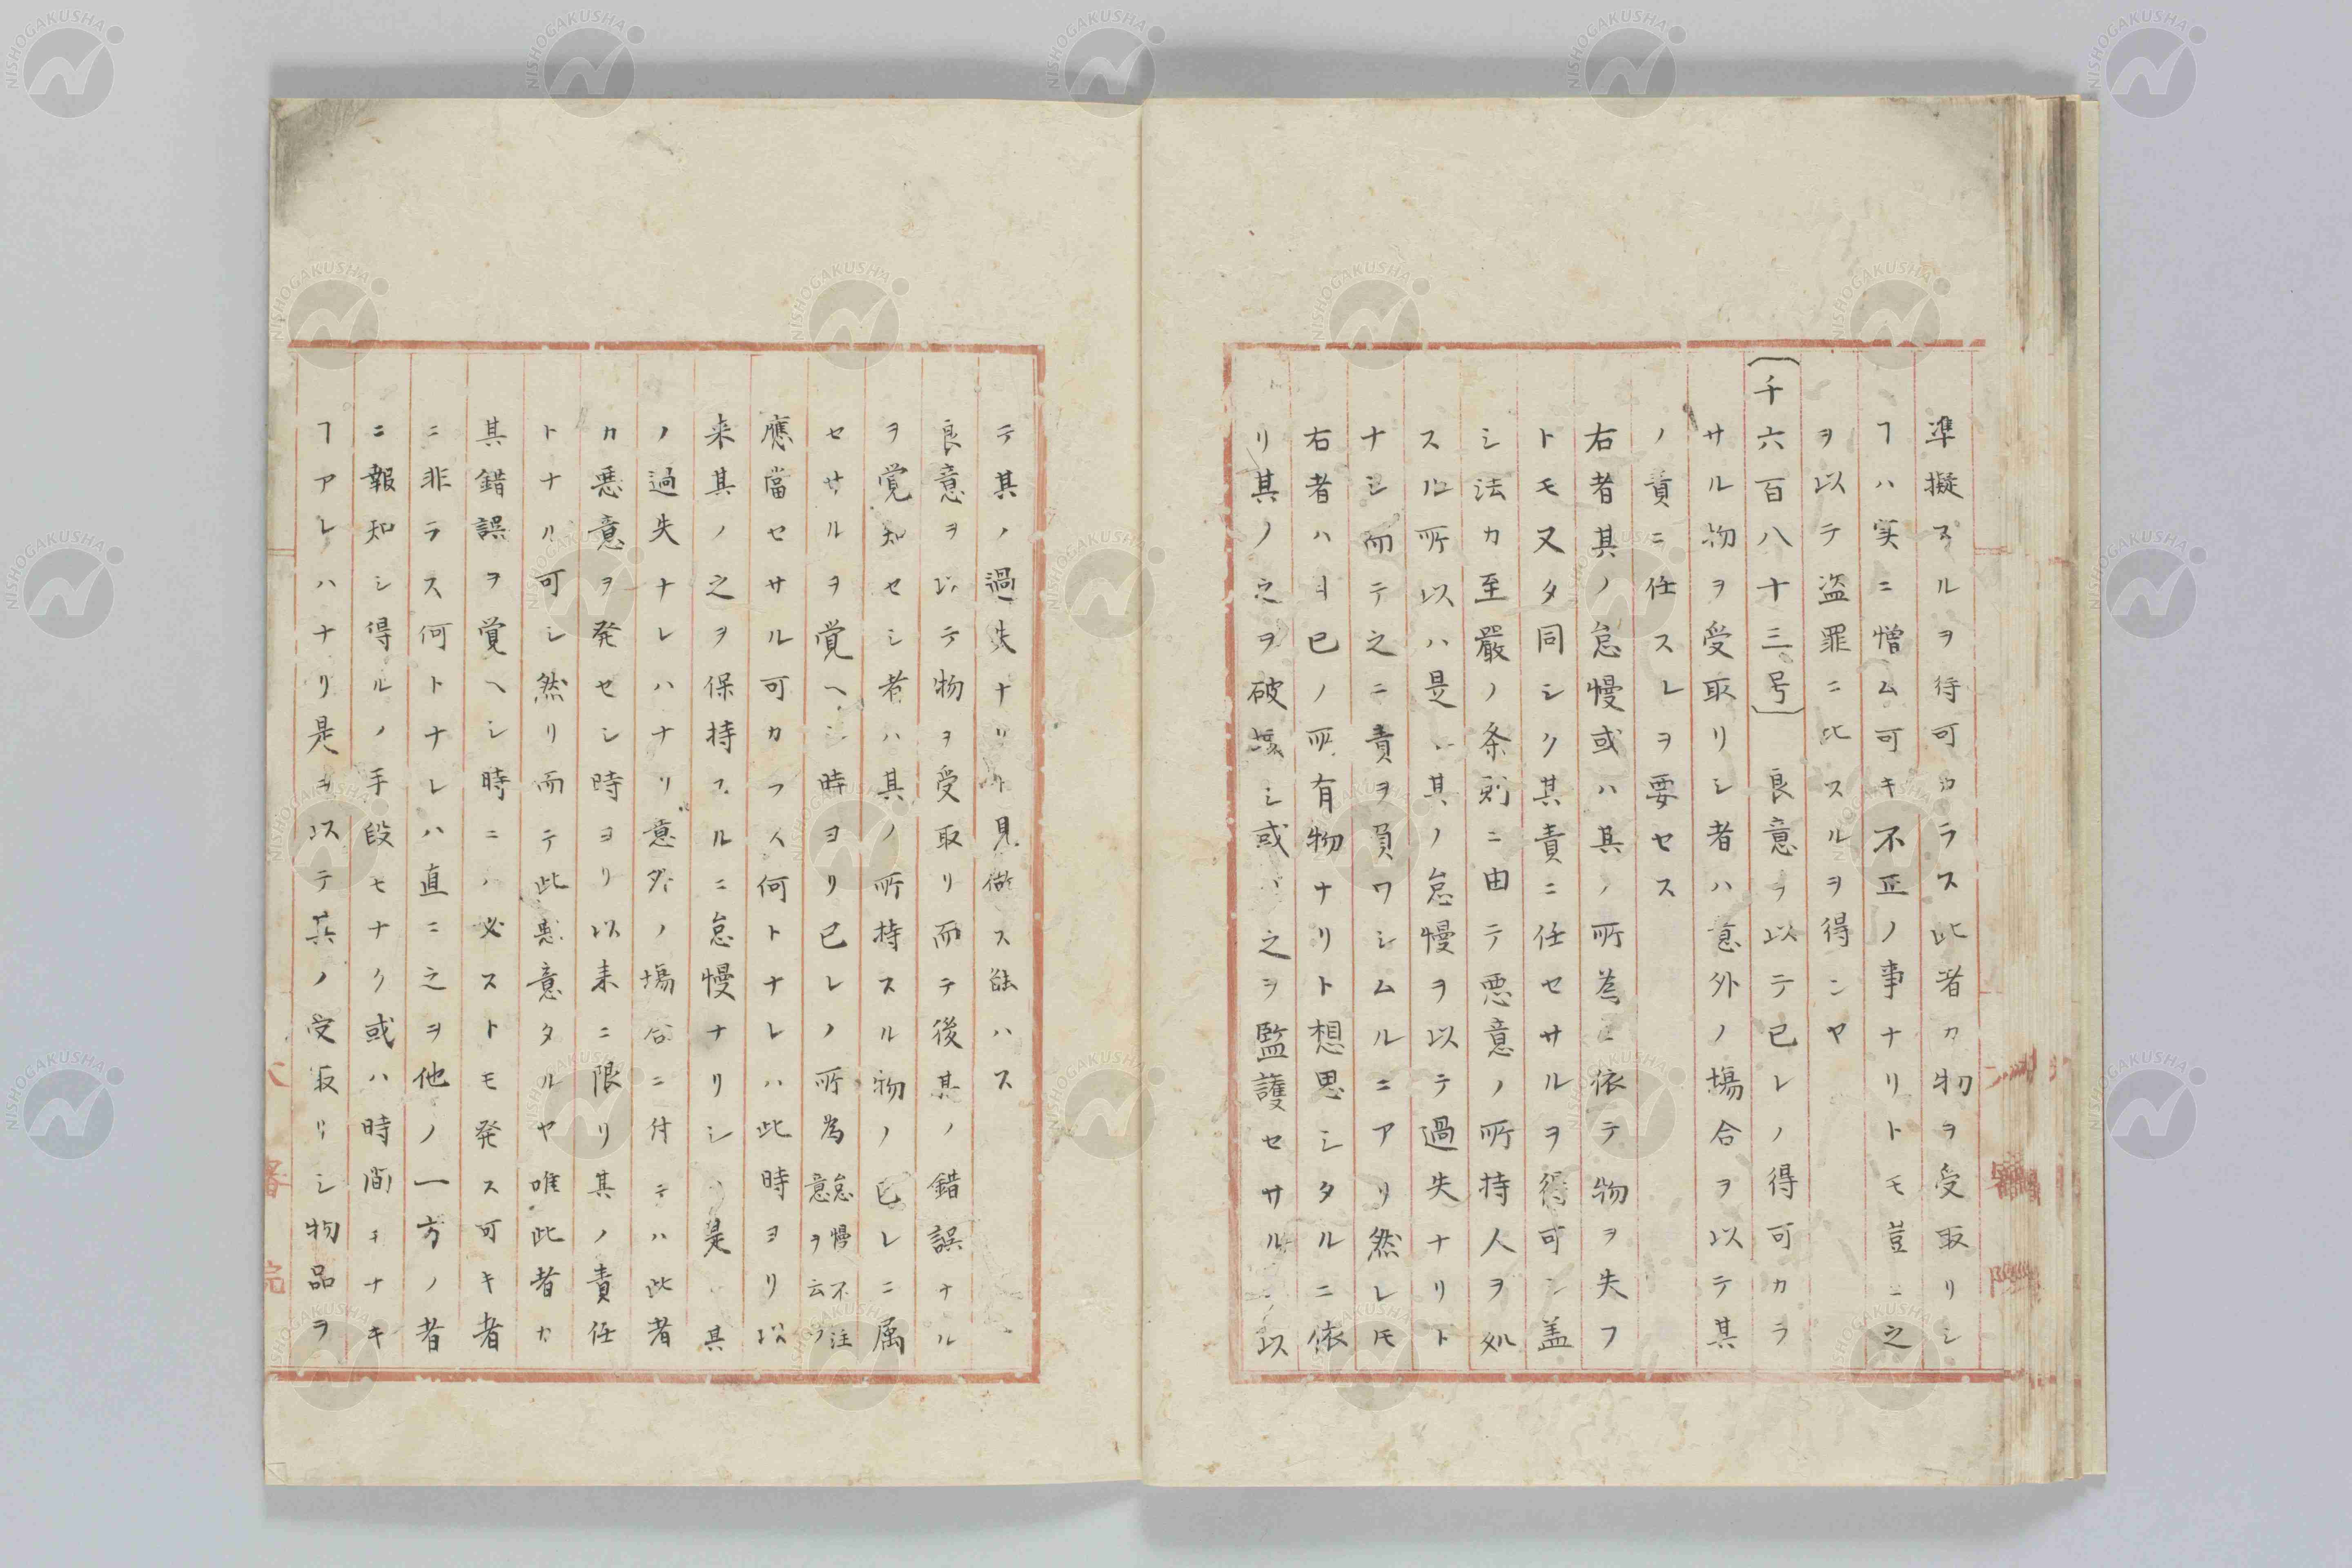 準擬スルヲ得可カラス此者カ物ヲ受取リシ
ヿハ実ニ憎ム可キ不正ノ事ナリトモ豈ニ之
ヲ以テ盗罪ニ比スルヲ得ンヤ
〔千六百八十三号〕 良意ヲ以テ已レノ得可カラ
サル物ヲ受取リシ者ハ意外ノ塲合ヲ以テ其
ノ責ニ任スレヲ要セス
右者其ノ怠慢或ハ其ノ所為ニ依テ物ヲ失フ
トモ又タ同シク其責ニ任セサルヲ得可シ盖
シ法カ至嚴ノ条則ニ由テ悪意ノ所持人ヲ処
スル所以ハ是レ其ノ怠慢ヲ以テ過失ナリト
ナシ而テ之ニ責ヲ負ワシムルニアリ然レ𪜈
右者ハ已ノ所有物ナリト想思シタルニ依
リ其ノ之ヲ破壊シ或ハ之ヲ監護セサルヲ以
テ其ノ過失ナリト見做ス能ハス
良意ヲ以テ物ヲ受取リ而テ後其ノ錯誤ナル
ヲ覚知セシ者ハ其ノ所持スル物ノ已レニ属
セサルヲ覚ヘシ時ヨリ已レノ所為怠慢不注意ヲ云フ
應當セサル可カラス何トナレハ此時ヨリ以
来其ノ之ヲ保持スルニ怠慢ナリシハ是レ其
ノ過失ナレハナリ意外ノ塲合ニ付テハ此者
カ悪意ヲ発セシ時ヨリ以来ニ限リ其ノ責任
トナル可シ然リ而テ此悪意タルヤ唯此者カ
其錯誤ヲ覚ヘシ時ニハ必ストモ発ス可キ者
ニ非ラス何トナレハ直ニ之ヲ他ノ一方ノ者
ニ報知シ得ルノ手段モナク或ハ時間モナキ
ヿアレハナリ是ヲ以テ其ノ受取リシ物品ヲ
NISHOGAKUSHA